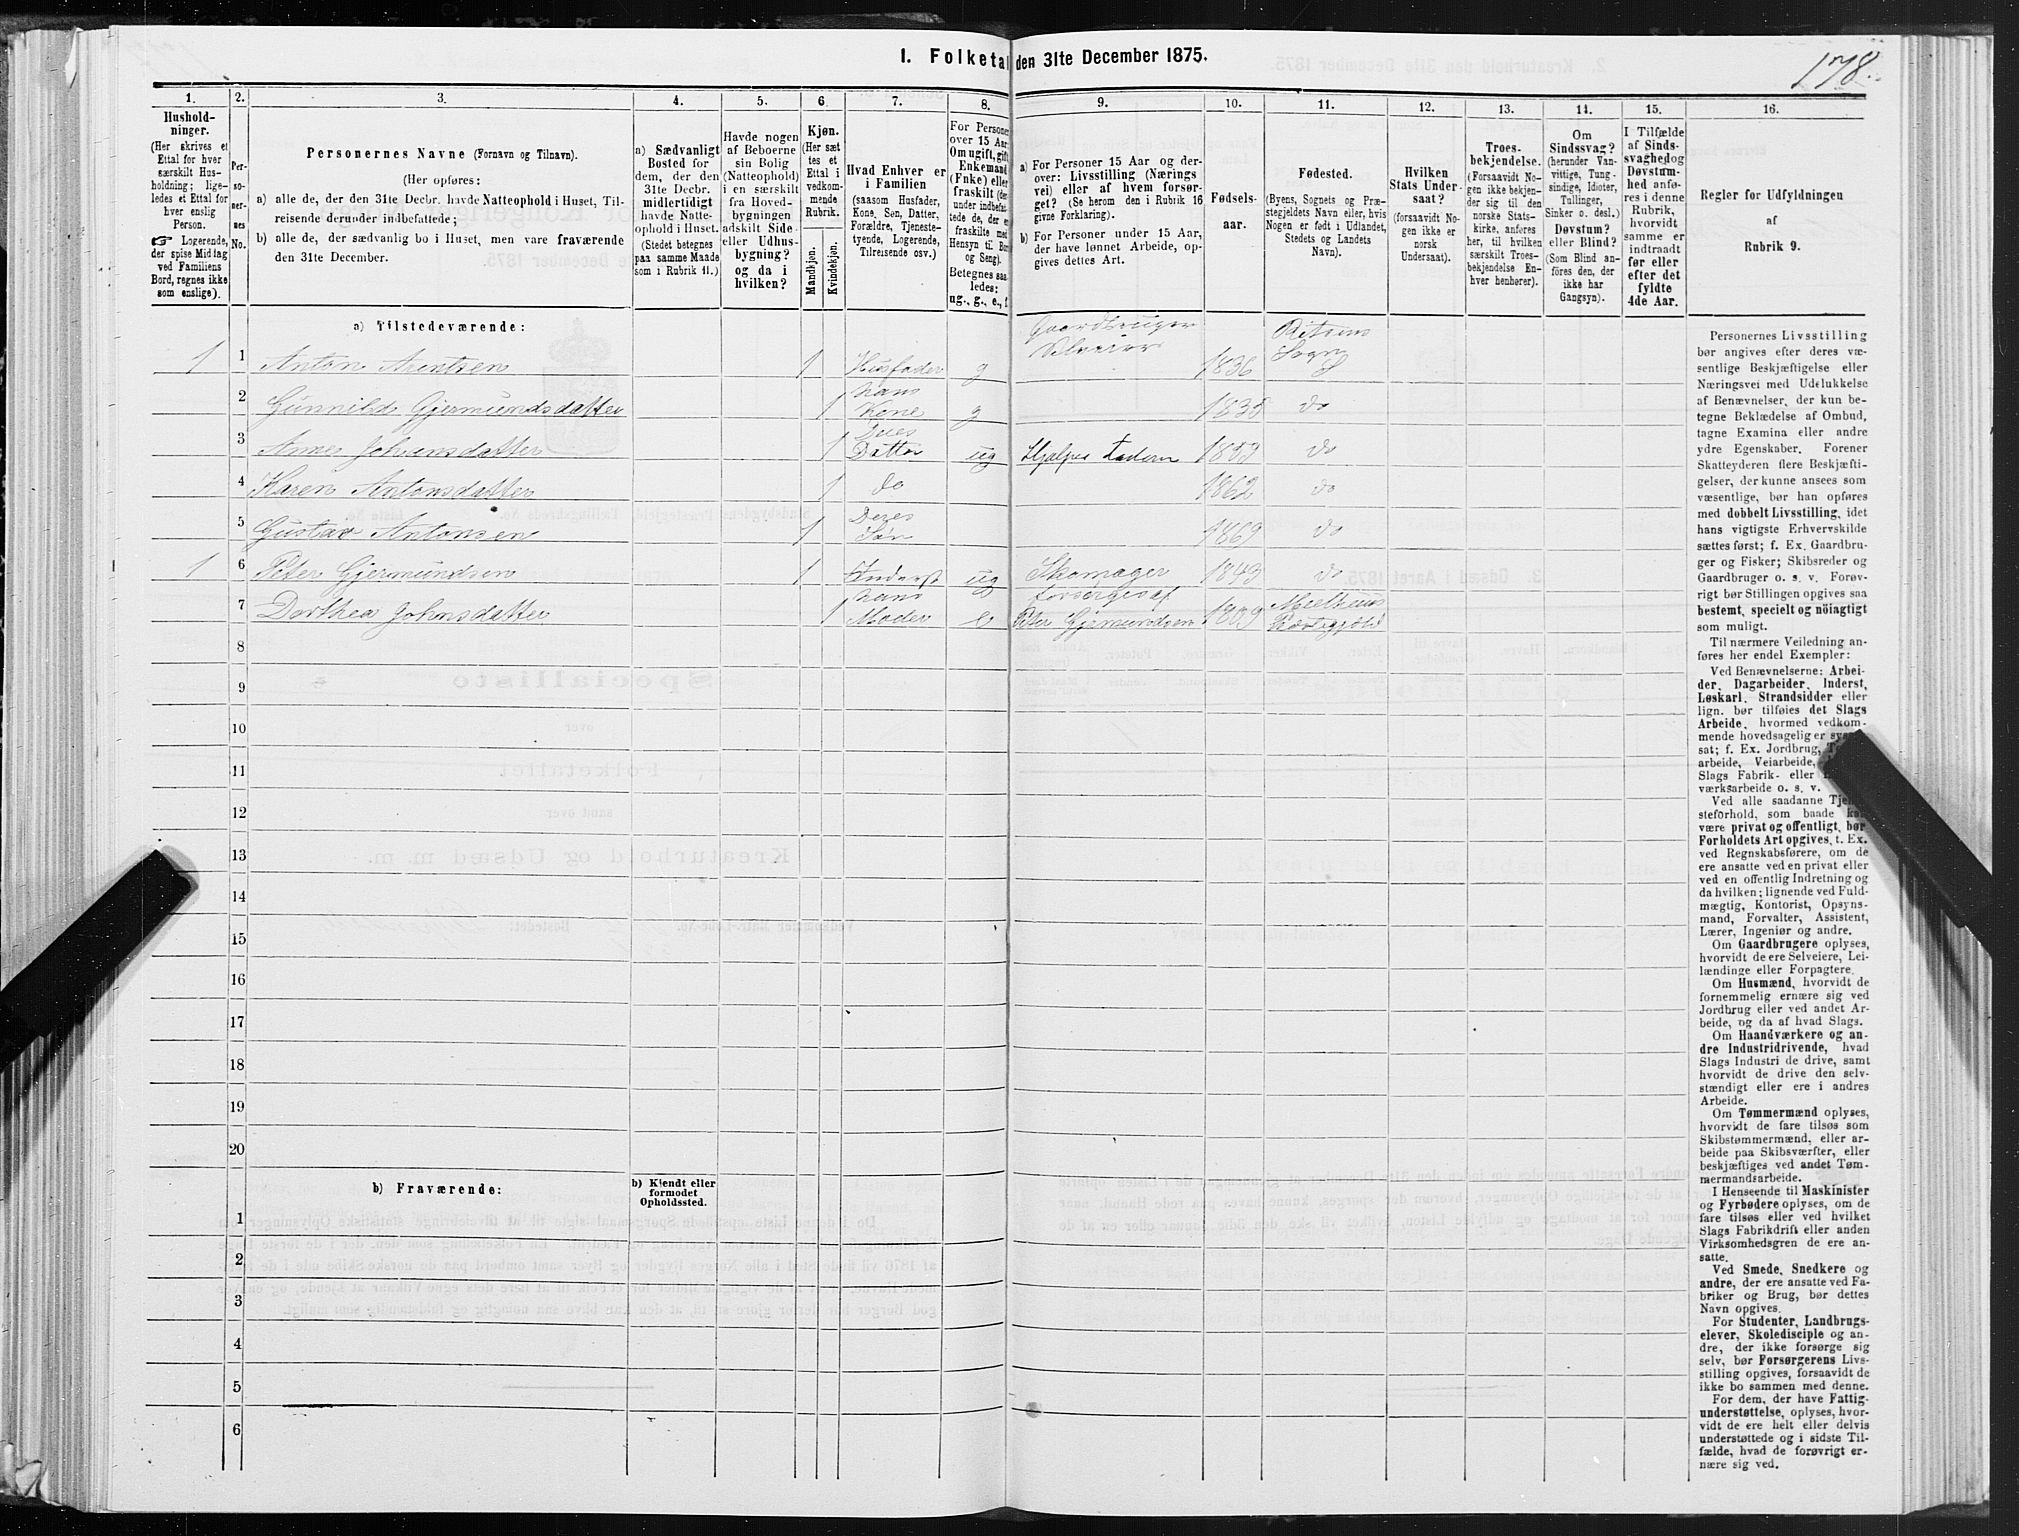 I. Folketal den 31te December 1875.
178.
1.
2.
3.
4.
5.
6.
7.
8.
9.
10.
11.
12.
13.
14.
15.
16.
Hushold-
ninger.
(Her skrives et
Ettal for hver
særskilt Hus-
holdning; lige-
ledes et Ettal for
hver enslig
Person.
☞ Logerende,
der spise Middag
ved Familiens
Bord, regnes ikke
som enslige).
Per-
so-
ner-
nes
No.
Personernes Navne (Fornavn og Tilnavn).
(Her opføres:
a) alle de, der den 31te Decbr. havde Natteophold i Huset, Til-
reisende derunder indbefattede;
b) alle de, der sædvanlig bo i Huset, men vare fraværende
den 31te December.
a) Sædvanligt
Bosted for
dem, der den
31te Decbr.
midlertidigt
havde Natte-
ophold i Huset.
(Stedet betegnes
paa samme Maade
som i Rubrik 11.)
Havde nogen
af Beboerne
sin Bolig
(Natteophold)
i en særskilt
fra Hoved-
bygningen
adskilt Side-
eller Udhus-
bygning?
og da i
hvilken?
Kjøn.
(Her sæt
tes et
Ettal i
vedkom-
mende
Rubrik.
Mandkjøn.
Kvindekjøn.
Hvad Enhver er
i Familien
(saasom Husfader,
Kone, Søn, Datter,
Forældre, Tjeneste-
tyende, Logerende,
Tilreisende osv.)
For Personer
over 15 Aar:
Om ugift, gift,
Enkemand
(Enke) eller
fraskilt (der-
under indbefat-
tede de, der er
fraskilte med
Hensyn til Bord
og Seng).
Betegnes saa-
ledes:
ug., g., e., f.
a) For Personer 15 Aar og der-
over: Livsstilling (Nærings
vei) eller af hvem forsør-
get? (Se herom den i Rubrik 16
givne Forklaring).
b) For Personer under 15 Aar,
der have lønnet Arbeide, op-
gives dettes Art.
Fødsels-
aar.
Fødested.
(Byens, Sognets og Præ-
stegjeldets Navn eller, hvis
Nogen er født i Udlandet,
Stedets og Landets
Navn).
Hvilken
Stats Under-
saat?
(forsaavidt No-
gen ikke er
norsk
Undersaat).
Troes-
bekjendelse.
(Forsaavidt No-
gen ikke bekjen-
der sig til den
norske Stats-
kirke, anføres
her, til hvilken
særskilt Troes-
bekjendelse En-
hver henhører).
Om
Sindssvag?
(herunder Van-
vittige, Tung-
sindige, Idioter,
Tullinger,
Sinker o. desl.)
Døvstum?
eller Blind?
(Som Blind an-
føres den, der
ikke har
Gangsyn).
I Tilfælde
af Sinds-
svaghed og
Døvstum-
hed anfø-
res i denne
Rubrik,
hvorvidt
samme er
indtraadt
før eller
efter det
fyldte
4de Aar.
Regler for Udfyldningen
af
Rubrik 9.
a) Tilstedeværende:
1 1 Anton Arentsen 1 Husfader g Gaardbruger Selveier 1836 Sogn
2 Gunnild Gjermundsdatter 1 hans Kone g 1835 do
3 Anne Johansdatter 1 Deres Datter ug Hjælper Faderen 1859 do
4 Karen Antonsdatter 1 do 1862 do
5 Gustav Antonsen 1 Deres Søn 1869 do
1 6 Peter Gjermundsen 1 Inderst ug Skomager 1843 do
7 Dorthea Johnsdatter 1 hans Moder e forsørges af Peter Gjermundsen 1809 Melhuus Præstegjeld
8
9
10
11
12
13
14
15
16
17
18
19
20
b) Fraværende:
b) Kjendt eller
formodet
Opholdssted.
1
2
3
4
5
6
Personernes Livsstilling
bør angives efter deres væ-
sentlige Beskjæftigelse eller
Næringsvei med Udelukkelse
af Benævnelser, der kun be-
tegne Beklædelse af Ombud,
tagne Examina eller andre
ydre Egenskaber. Forener
Skatteyderen flere Beskjæfti-
gelser, der kunne ansees som
væsentlige, bør han opføres
med dobbelt Livsstilling, idet
hans vigtigste Erhvervskilde
sættes først; f. Ex. Gaardbru-
ger og Fisker; Skibsreder og
Gaardbruger o. s. v. Forøv-
rigt bør Stillingen opgives saa
bestemt, specielt og nöiagtigt
som muligt.
Til nærmere Veiledning an-
føres her endel Exempler:
Ved Benævnelserne: Arbei-
der, Dagarbeider, Inderst,
Løskarl, Strandsidder eller
lign. bør tilføies det Slags
Arbeide, hvormed vedkom-
mende hovedsagelig er syssel-
sat; f. Ex. Jordbrug,
arbeide, Veiarbeide,
Slags Fabrik- eller
værksarbeide o. s. v.
Ved alle saadanne Tjene-
steforhold, som baade kan
være privat og offentligt, bør
Forholdets Art opgives, t. Ex.
ved Regnskabsførere, om de
ere ansatte ved en privat eller
ved en offentlig Indretning og
da hvilken; lignende ved Fuld-
mægtig, Kontorist, Opsyns-
mand, Forvalter, Assistent,
Lærer, Ingeniør og andre.
Om Gaardbrugere oplyses,
hvorvidt de ere Selveiere, Lei-
lændinge eller Forpagtere.
Om Husmænd, hvorvidt de
fornemmelig ernære sig ved
Jordbrug eller ved andet Ar-
beide, og da af hvad Slags.
Om Haandværkere og an-
dre Industridrivende, hvad
Slags Industri de drive, samt
hvorvidt de drive den selv-
stændigt eller ere i andres
Arbeide.
Om Tømmermænd oplyses,
hvorvidt de fare tilsøs som
Skibstømmermænd, eller ar-
beide paa Skibsværfter, eller
beskjæftiges ved andet Tøm-
mermandsarbeide.
I Henseende til Maskinister
og Fyrbødere oplyses, om de
fare tilsøs eller ved hvilket
Slags Fabrikdrift eller anden
Virksomhedsgren de ere an-
satte.
Ved Smede, Snedkere og
andre, der ere ansatte ved Fa-
briker og Brug, bør dettes
Navn opgives.
For Studenter, Landbrugs-
elever, Skoledisciple og an-
dre, der ikke forsørge sig
selv, bør Forsørgerens Livs-
stilling opgives, forsaavidt de
ikke bo sammen med denne.
For dem, der have Fattig-
understøttelse, oplyses, hvor-
vidt de ere helt eller delvis
understøttede og i sidste Til-
fælde, hvad de forøvrigt er-
nære sig ved.